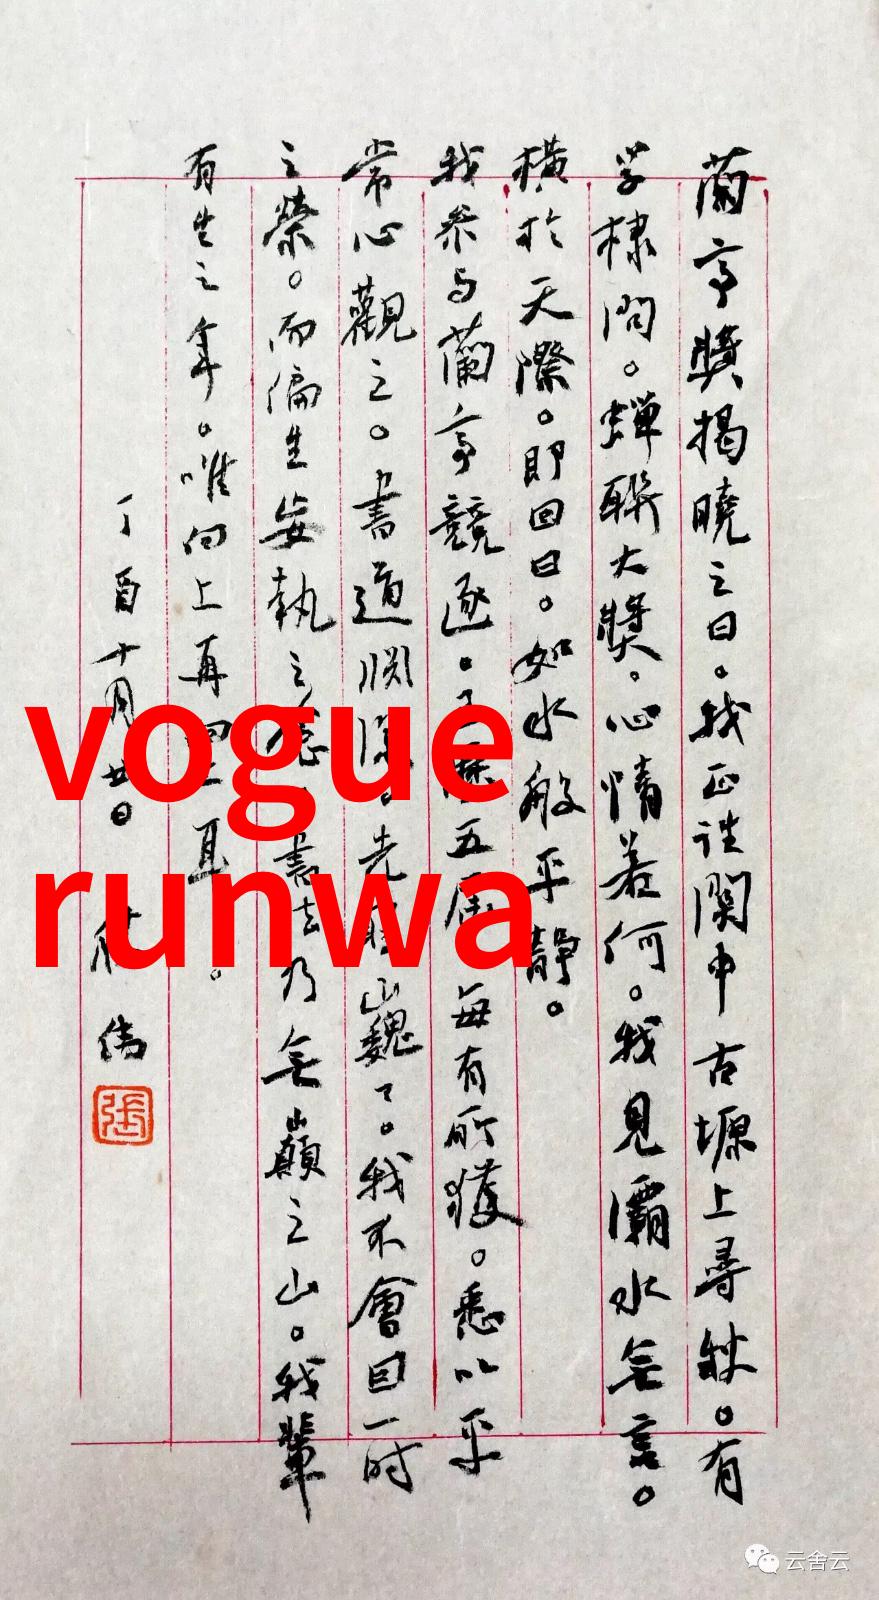 蘭亭獎揭曉之日。我正在關中古塬上尋秋。有
学棣問。蟬聯大獎。心情若何。我見灞水無言。
橫於天際。即回曰。如水般平静。
我参与蘭亭競逐。五届每有所獲。悉以平
常心觀之。書道淵先山巍々。我不會因一时
之榮。而偏生妄執之念。書法乃無巔之山。我輩
有生之年。唯向上再向上耳。
丁酉十月廿日 偉
張
vogue
runwa
云舍云